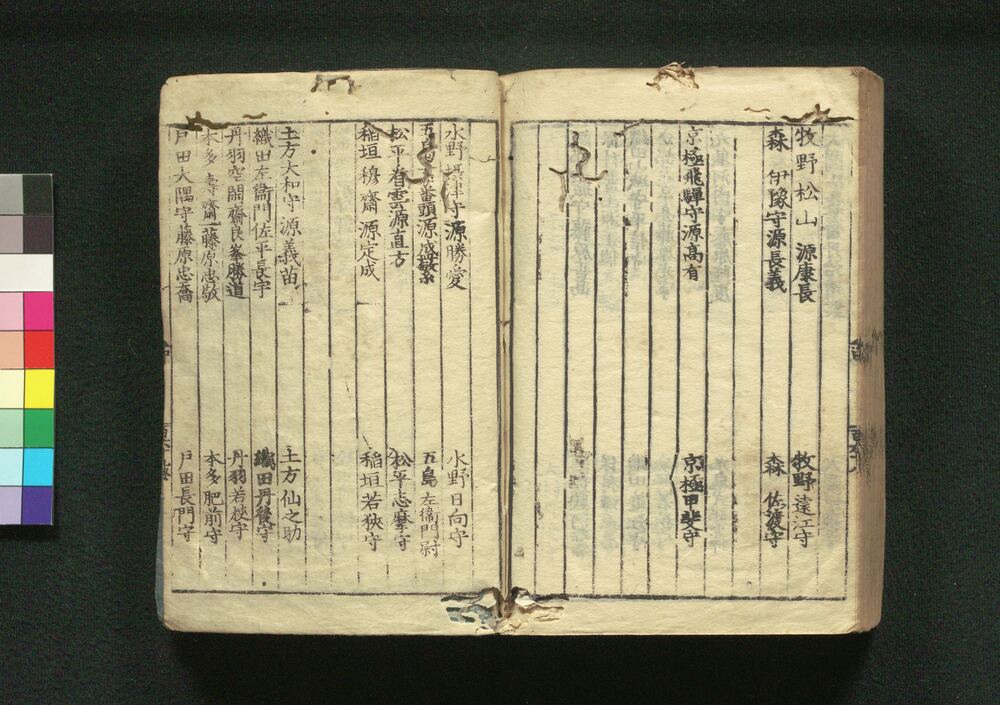 牧野松山源康長　牧野遠江守
森伊豫守源長義　森佐渡守
京極飛騨守源高有　京極甲斐守
水野摂津守源勝愛　水野日向守
五島番頭源盛繁　五島左衞門尉
松平看雲源直方　松平志摩守
稲垣穆齋源定成　稲垣若狹守
土方大和守源義苗　土方仙之助
織田左衞門佐平長宇　織田丹後守
丹羽空閑齋良峯勝道　丹羽若狹守
本多壽齋藤原忠敬　本多肥前守
戸田大隅守藤原忠喬　戸田長門守